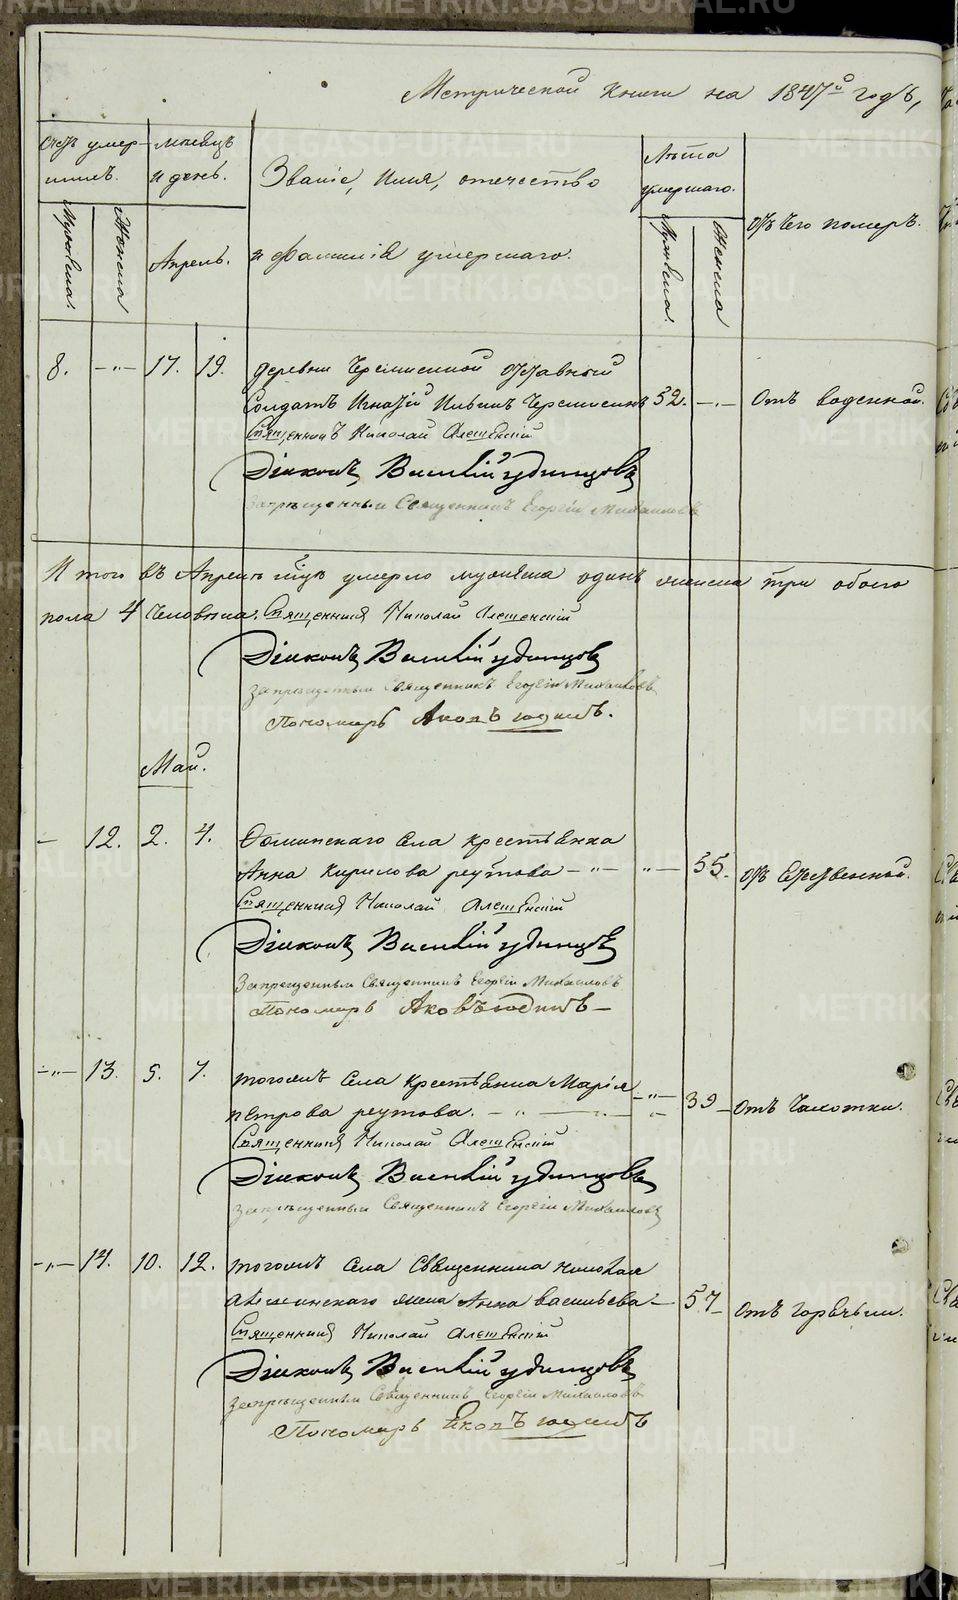 Метрической Книги на 1847й годъ,
Счетъ умершихъ.
Мужеска.
Женска
Месяцъ и день.
Апрель.
Званіе, Имя, отечество
и фамилія умершаго.
Лета умершаго.
Мужеска.
Женска
Отъ чего померъ.
8. —„— 17. 19. деревни Черемисиной отставный
Солдатъ Игнатій Ильинъ Черемисинъ 52. —„— Отъ водяной.
Священникъ Николай
Діаконъ Василій Удинцовъ
Запрещенный Священникъ Георгій Михайловъ
Итого въ Апреле умерло мужеска одинъ женска три обоего
пола 4 человека. Священникъ Николай
Діаконъ Василій Удинцовъ
Запрещенный Священникъ Георгій Михайловъ
Пономарь Яковъ Юдинъ.
Май.
— 12. 2. 4. села крестьянка
Анна Кирилова Реутова —„— „— 55. отъ Естественной.
Священникъ Николай
Діаконъ Василій Удинцовъ
Запрещенный Священникъ Георгій Михайловъ
Пономарь Яковъ Юдинъ —
—„— 13. 5. 7. тогожъ Села крестьянка Марія
Петрова Реутова. —„— „— 39 отъ Чахотки.
Священникъ Николай
Діаконъ Василій Удинцовъ
Запрещенный Священникъ Георгій Михайловъ
—„— 14. 10. 12. тогожъ Села Священника Николая
жена Анна Васильева — 57 отъ горячки.
Священникъ Николай
Діаконъ Василій Удинцовъ
Запрещенный Священникъ Георгій Михайловъ
Пономарь Яковъ Юдинъ
METRIKI.GASO-URAL.RU